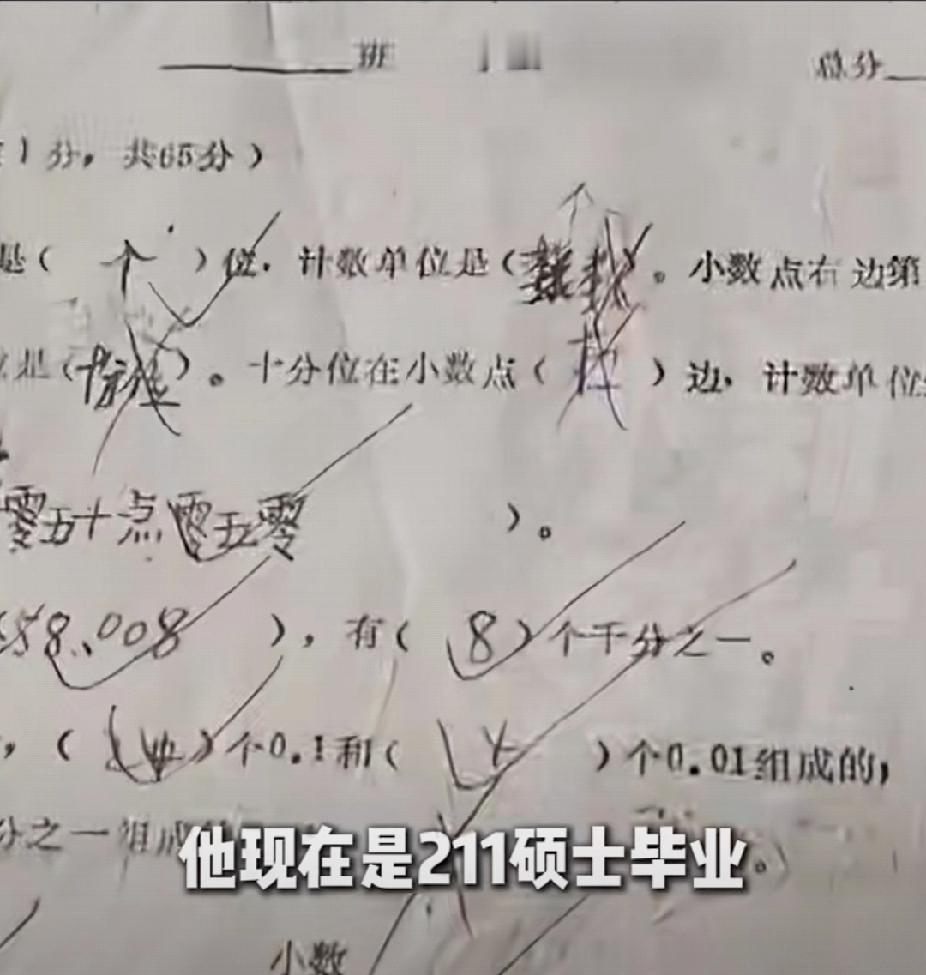 班 总分
1分，共65分）
是（ 个 ）位．计数单位是（ ）。小数点右边第
是（十分位）。十分位在小数点（ ）边，计数单位
零五十点零五零 ）。
58.008 ），有（ 8 ）个千分之一。
，（ ）个0.1和（ ）个0.01组成的，
分之一组成
他现在是211硕士毕业
小数